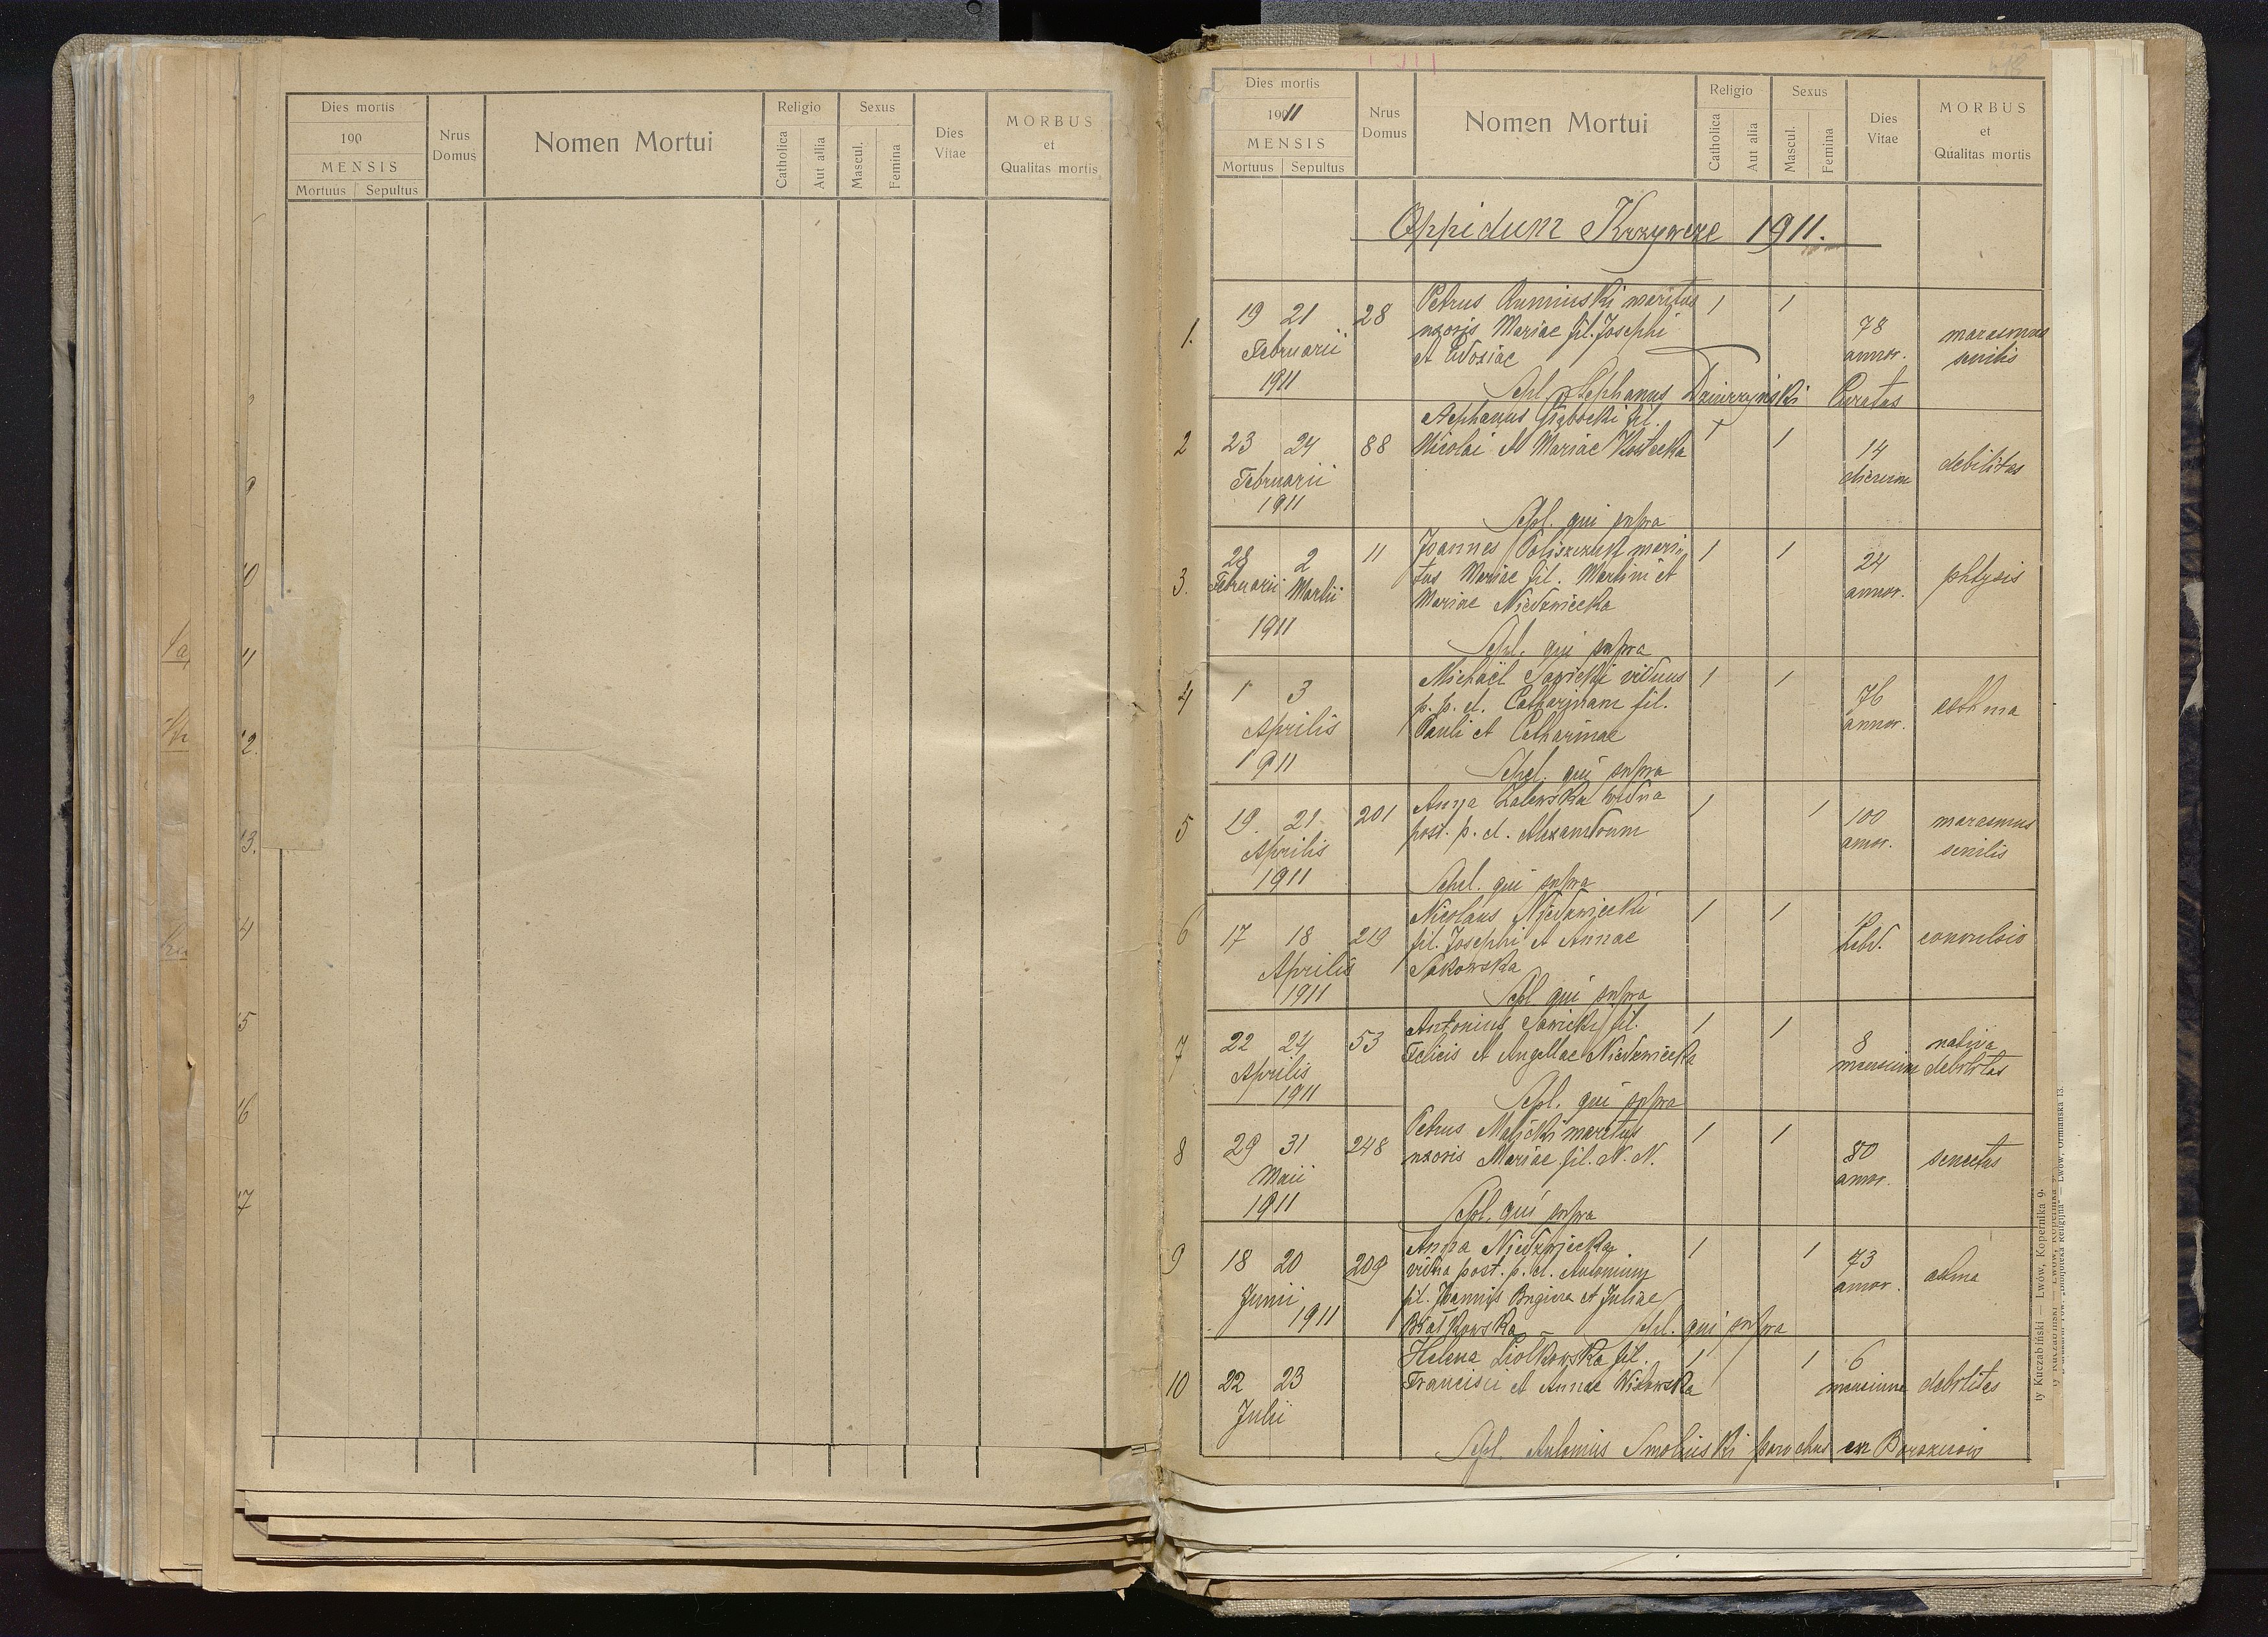 Dies mortis
190
MENSIS
Mortuus Sepultus
Nrus
Domus
Nomen Mortui
Religio
Catholica
Aut allia
Sexus
Mascul.
Femina
Dies
Vitae
MORBUS
et
Qualitas mortis
9
10
11
12.
13.
14
15
16
17
Dies mortis
1911
MENSIS
Mortuus Sepultus
Nrus
Domus
Nomen Mortui
Religio
Catholica
Aut alia
Sexus
Mascul.
Femina
Dies
Vitae
MORBUS
et
Qualitas mortis
Oppidum Krzywcze 1911.
1. 19 21 28 Petrus maritus 1 1 78 marasmus
Februarii uxoris Mariae fil. Josephi annor. senilis
1911 et
Sepl. Stephanus Dziurzyński Curatus
2 23 24 88 Stephanus Głębocki fil. 1 1 14 debilitas
Februarii Nicolai et Mariae Kostecka dierum
1911
Sepl. qui supra
3. 28 2 11 Joannes Poliszczuk mari- 1 1 24 phtysis
Februarii Martii tus Mariae fil. Martini et annor.
1911 Mariae Niedzwiecka
Sepl. qui supra
4 1 3 Michaël Sawicki viduus 1 1 76 asthma
Aprilis p. p. d. Catharinam fil. annor.
1911 Pauli et Catharinae
Sepel. qui supra
5 19. 21. 201 Anna Zalewska vidua 1 1 100 marasmus
Aprilis post. p. d. Alexandrum annor. senilis
1911
Sepel. qui supra
6 17 18 219 Nicolaus Niedzwiecki 1 1 convulsio
Aprilis fil. Josephi et Annae
1911 Sakowska
Sepl qui supra
7 22 24 53 Antonius Sawicki fil. 1 1 8 nativa
Aprilis Felicis et Angellae Niedzwiecka mensium debilitas
1911
Sepl. qui supra
8 29 31 248 Petrus Malicki maritus 1 1 80 senectus
Maii uxoris Mariae fil. N. N. annor.
1911
Sepl. qui supra
9 18 20 209 Anna Niedzwiecka 1 1 73 astma
Junii vidua post. p. d. Antonium annor.
1911 fil. Joannis et Juliae
Białkowska Sepl. qui supra
10 22 23 Helena Ziołkowska fil. 1 1 6 debilitas
Julii Francisci et Annae mensium
Sepl. Antonius Smoliński parochus ex Borszczow
ty Kuczabiński — Lwów, Kopernika 9.
Lwów, Ormiańska 13.